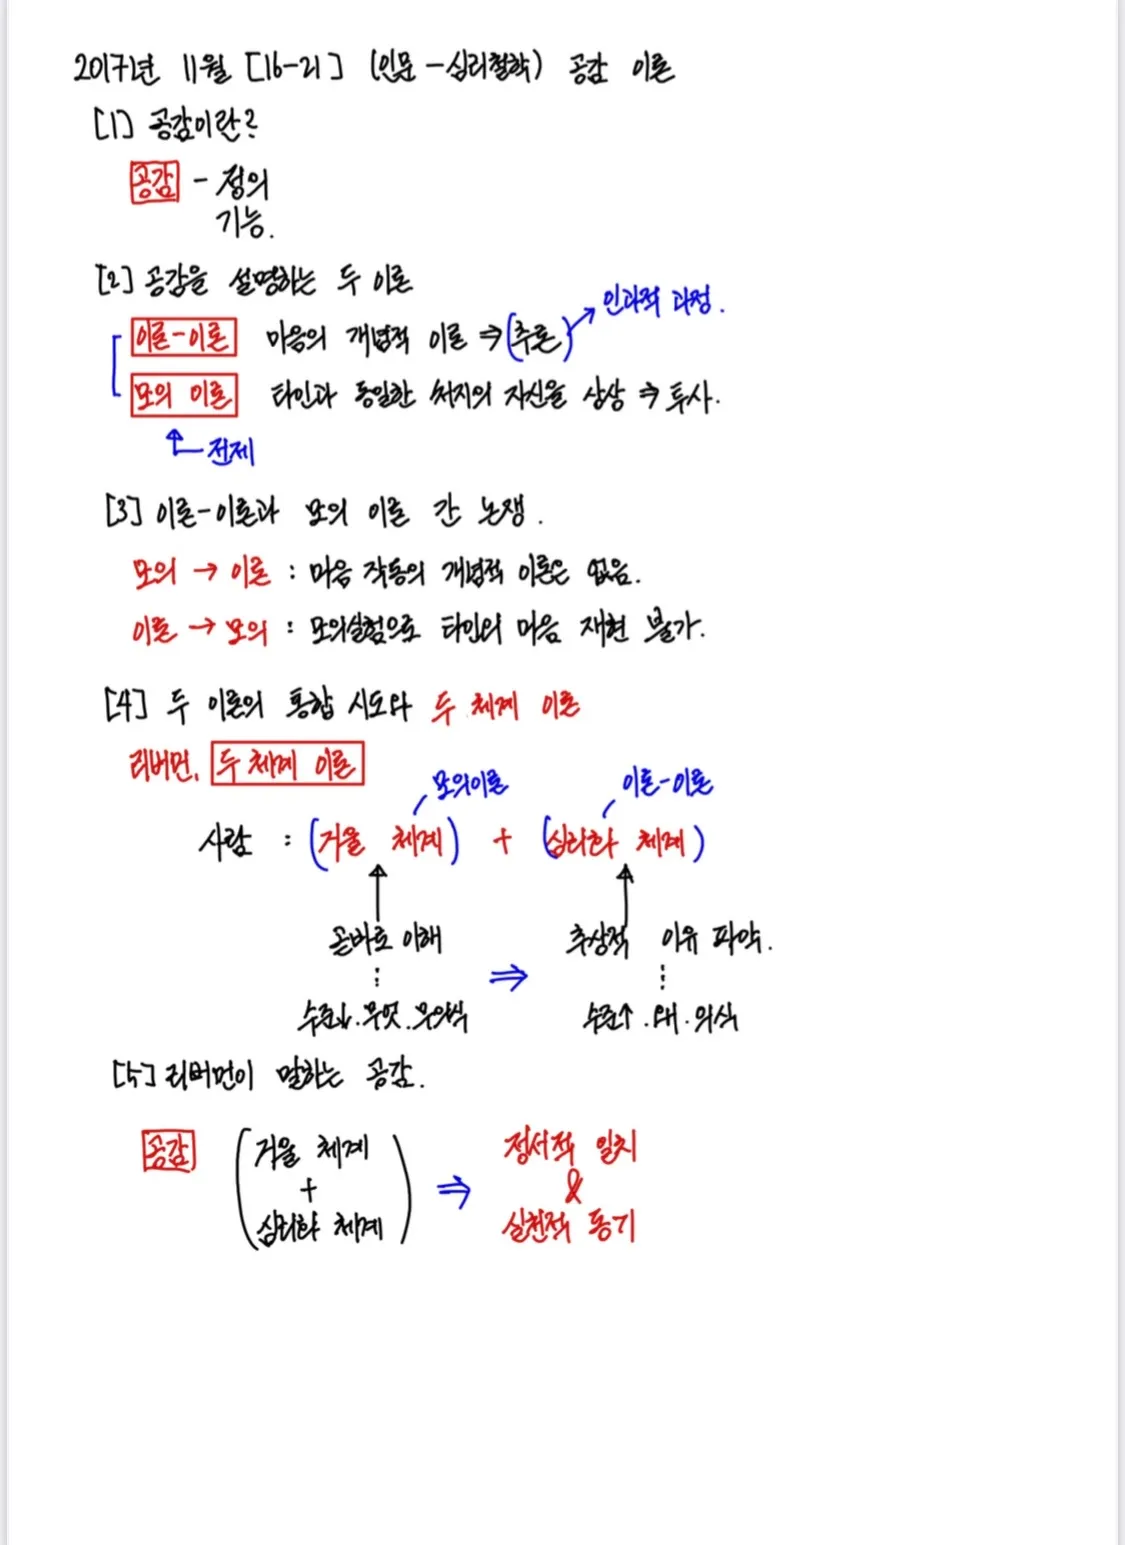 2017년 11월 [16-21] (인문-심리철학) 공감 이론
[1] 공감이란?
공감 - 정의
기능.
[2] 공감을 설명하는 두 이론
인과적 과정.
이론-이론 마음의 개념적 이론 ⇒ (추론)
모의 이론 타인과 동일한 처지의 자신을 상상 ⇒ 투사.
전제
[3] 이론-이론과 모의 이론 간 논쟁.
모의 → 이론 : 마음 작동의 개념적 이론은 없음.
이론 → 모의 : 모의실험으로 타인의 마음 재현 불가.
[4] 두 이론의 통합 시도와 두 체계 이론
리버먼, 두 체계 이론
모의이론 이론-이론
사람 : (거울 체계) + (심리화 체계)
곧바로 이해 추상적 이유 파악.
⇒
수준↓.무엇.무의식 수준↑.왜.의식
[5] 리버먼이 말하는 공감.
공감 (거울 체계 + 심리화 체계) ⇒ 정서적 일치 & 실천적 동기